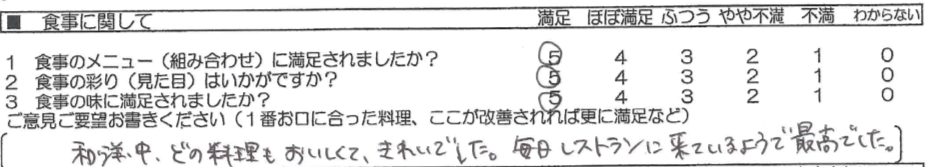 ■ 食事に関して 満足 ほぼ満足 ふつう やや不満 不満 わからない
1 食事のメニュー（組み合わせ）に満足されましたか？ 5 4 3 2 1 0
2 食事の彩り（見た目）はいかがですか？ 5 4 3 2 1 0
3 食事の味に満足されましたか？ 5 4 3 2 1 0
ご意見ご要望お書きください（1番お口に合った料理、ここが改善されれば更に満足など）
和洋中、どの料理もおいしくて、きれいでした。毎日レストランに来ているようで最高でした。